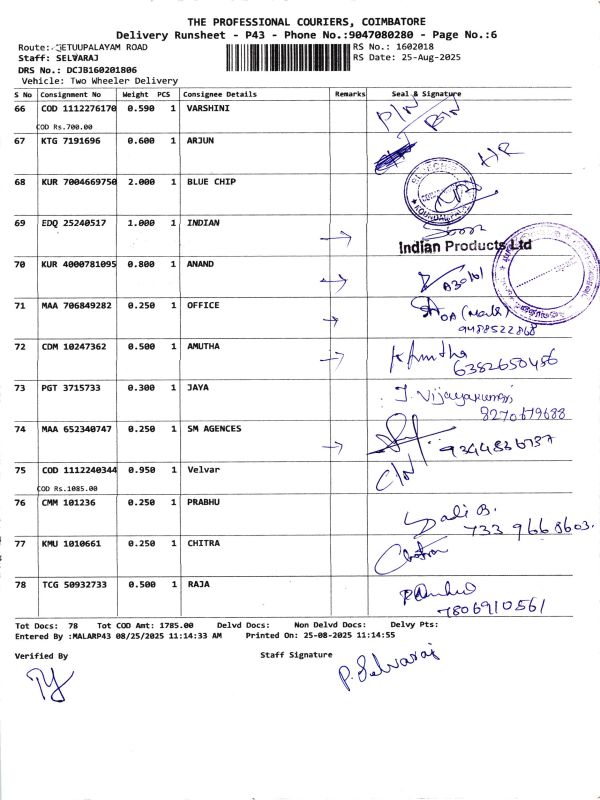 THE PROFESSIONAL COURIERS, COIMBATORE
Delivery Runsheet - P43 - Phone No.:9047080280 - Page No.:6
Route: ETUUPALAYAM ROAD
RS No.: 1602018
Staff: SELVARAJ
RS Date: 25-Aug-2025
DRS No.: DCJB160201806
Vehicle: Two Wheeler Delivery
S No Consignment No Weight PCS Consignee Details Remarks Seal & Signature
66 COD 1112276170 0.590 1 VARSHINI
COD Rs.700.00
67 KTG 7191696 0.600 1 ARJUN
68 KUR 7004669750 2.000 1 BLUE CHIP
69 EDQ 25240517 1.000 1 INDIAN
Indian Products Ltd
70 KUR 4000781095 0.800 1 ANAND
71 MAA 706849282 0.250 1 OFFICE
9488522868
72 CDM 10247362 0.500 1 AMUTHA
6382650456
73 PGT 3715733 0.300 1 JAYA
8270679688
74 MAA 652340747 0.250 1 SM AGENCES
9344836737
75 COD 1112240344 0.950 1 Velvar
COD Rs.1085.00
76 CMM 101236 0.250 1 PRABHU
733 9668603.
77 KMU 1010661 0.250 1 CHITRA
78 TCG 50932733 0.500 1 RAJA
7806910561
Tot Docs: 78 Tot COD Amt: 1785.00 Delvd Docs: Non Delvd Docs: Delvy Pts:
Entered By :MALARP43 08/25/2025 11:14:33 AM Printed On: 25-08-2025 11:14:55
Verified By Staff Signature
P. Selvaraj